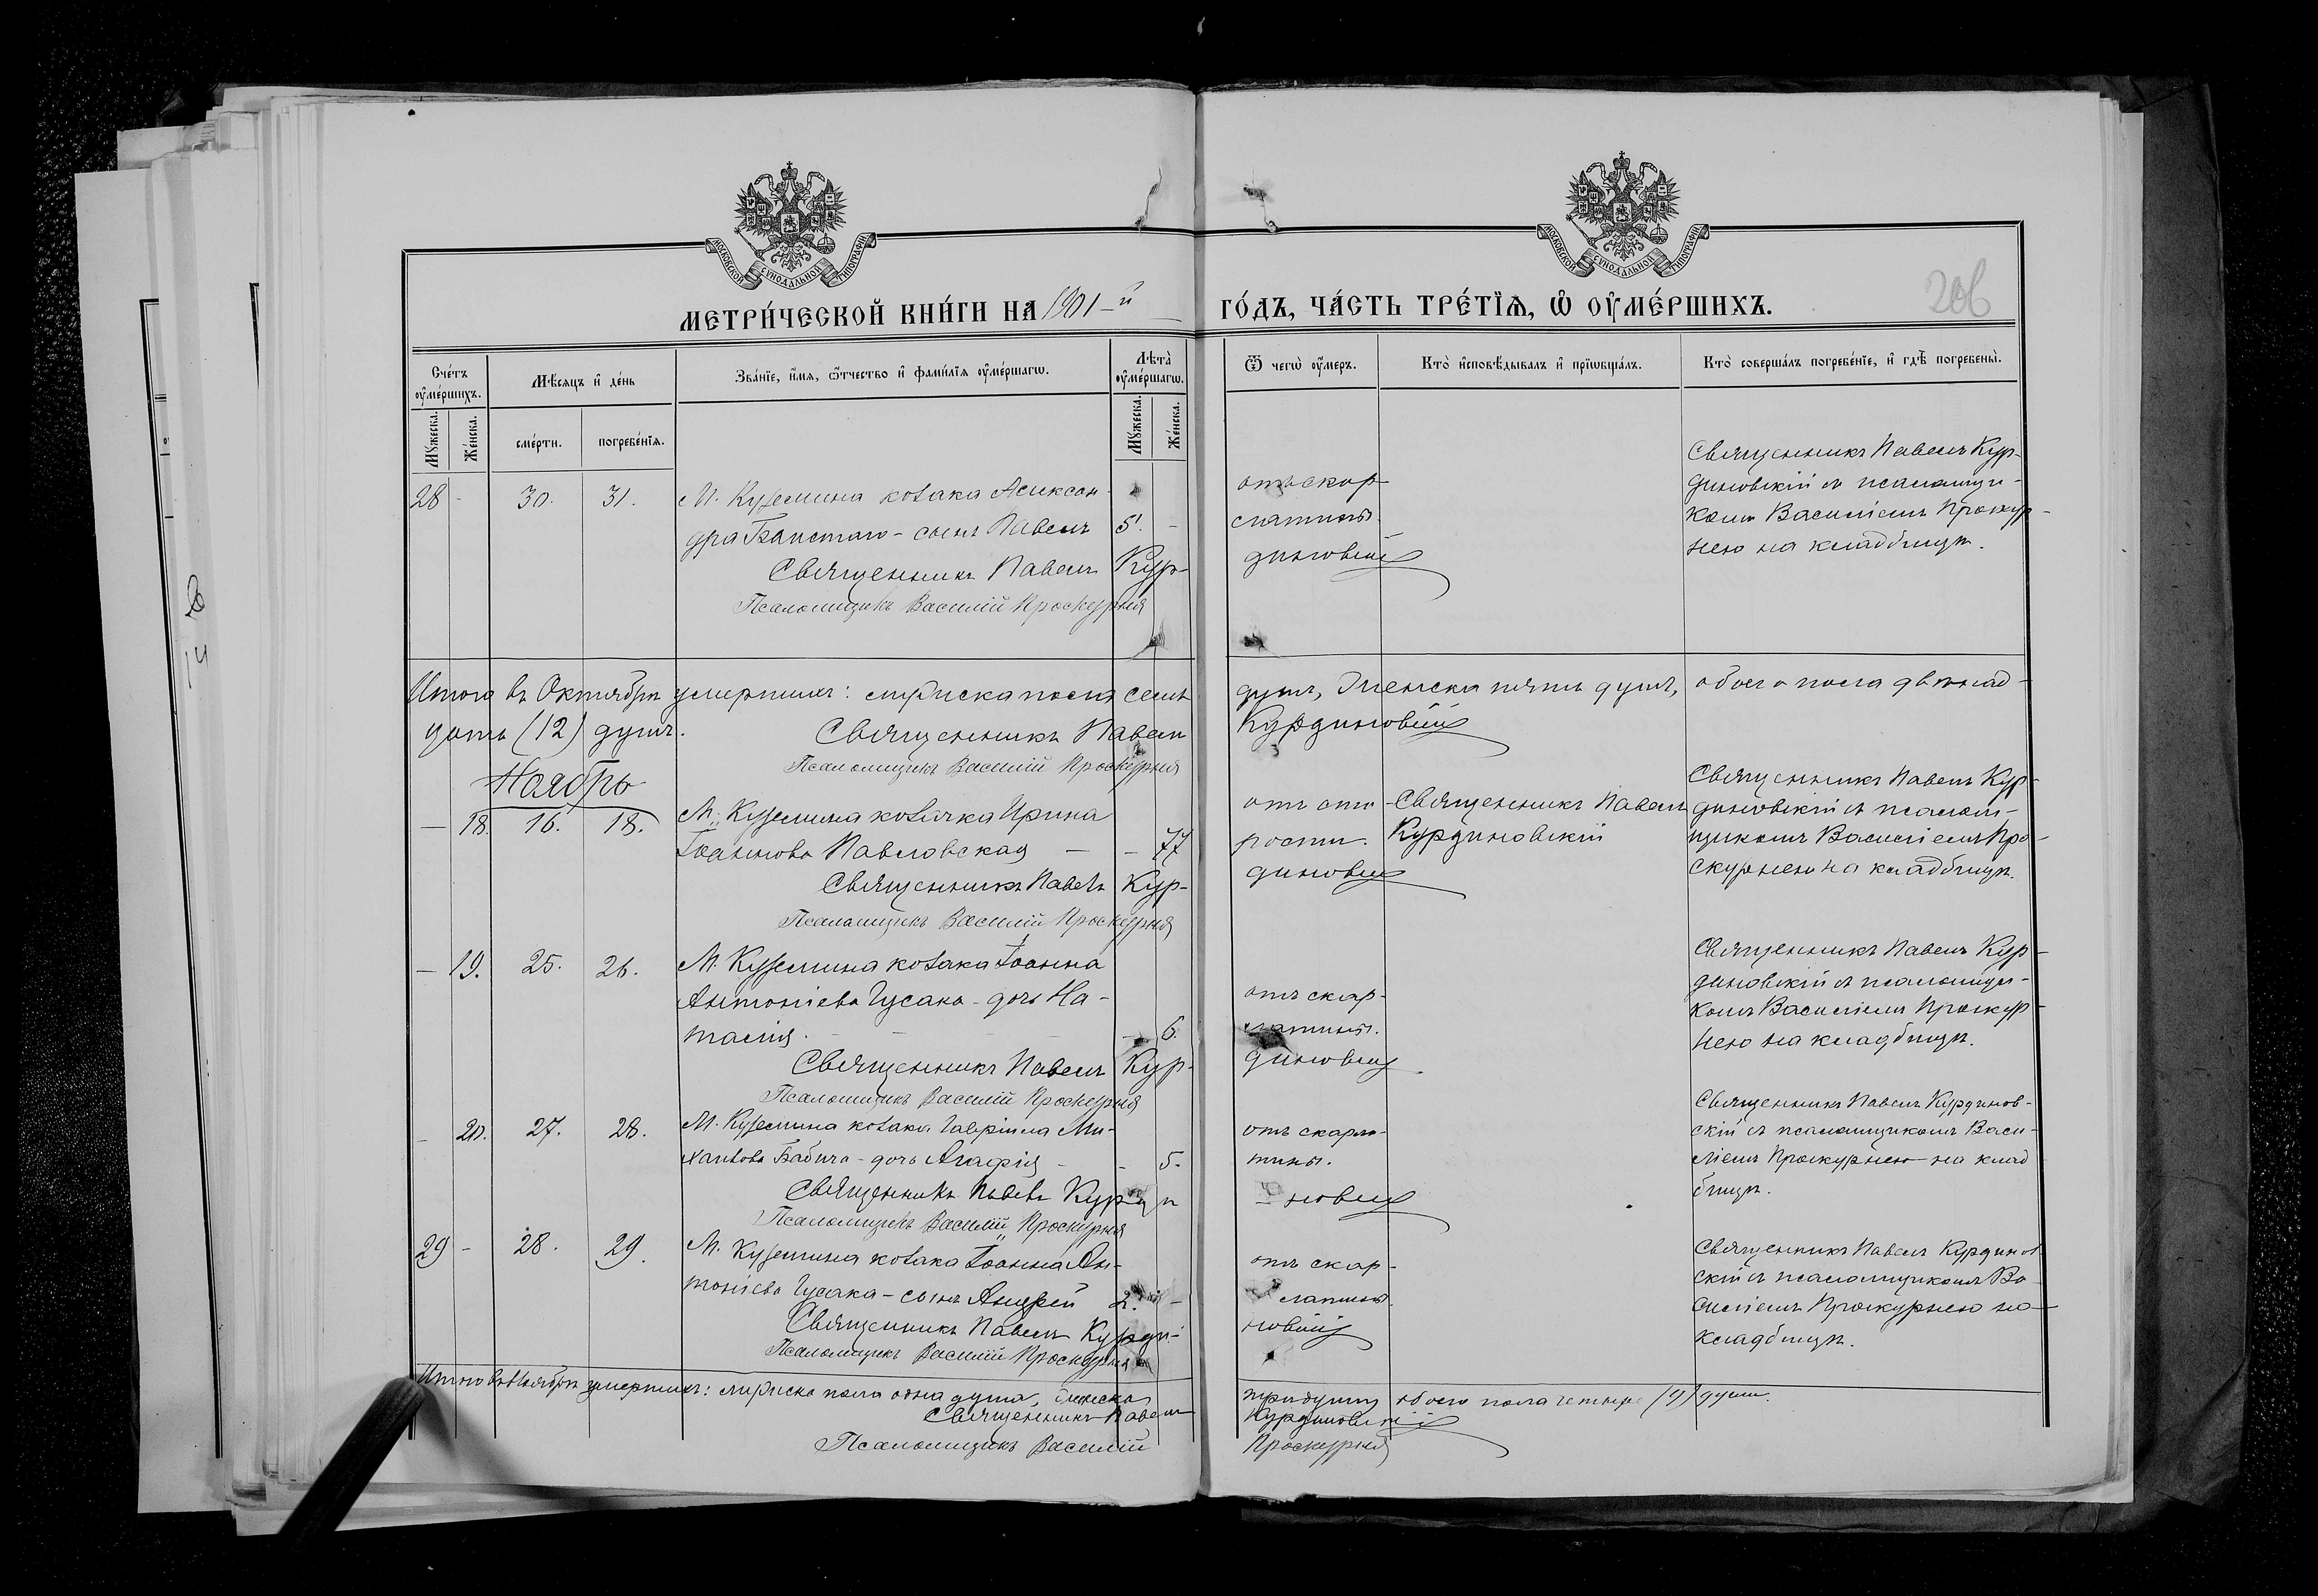 МОСКОВСКОЙ СУНОДАЛЬНОЙ ТИПОГРАФІИ
МОСКОВСКОЙ СУНОДАЛЬНОЙ ТИПОГРАФІИ
206
МЕТРИ́ЧЕСКОЙ КНИ́ГИ НА 1901-й ГО́ДЪ, ЧА́СТЬ ТРЕ́ТЇѦ, Ѽ ОУМЕ́РШИХЪ.
Счéтъ оумéршихъ.
Мѣ́сяцъ и дéнь
Звáніе, и́мя, ѻ́тчество и фами́лія оумéршагѡ.
Лѣтà оумéршагѡ.
Ѿ чегѡ̀ оу́меръ.
Ктò исповѣ́дывалъ и прїѡбщáлъ.
Ктò совершáлъ погребéніе, и гдѣ̀ погребены̀.
Мꙋжеска.
Жéнска.
смéрти.
погребéнїя.
Мꙋжеска.
Жéнска.
28 - 30. 31. М. Куземина козака Алексан-
дра Бѣлистаго - сынъ Павелъ 5. -
Священникъ Павелъ Кур-
Псаломщикъ Василій Проскурня
отъ скар-
латины.
диновскій
Священникъ Павелъ Кур-
диновскій съ псаломщи-
комъ Василіемъ Проскур-
нею на кладбищѣ.
Итого въ Октябрѣ умершихъ: мужеска пола семь душъ, женска пять душъ, обоего пола двѣнад-
цать (12) душъ. Священникъ Павелъ Курдиновскій
Псаломщикъ Василій Проскурня
Ноябрь
- 18. 16. 18. М. Куземина козачка Ирина
Іоаннова Павловская - - 77
Священникъ Павелъ Кур-
Псаломщикъ Василій Проскурня
отъ ста-
рости.
диновскій
Священникъ Павелъ
Курдиновскій
Священникъ Павелъ Кур-
диновскій съ псалом-
щикомъ Василіемъ Про-
скурнею на кладбищѣ.
- 19. 25. 26. М. Куземина козака Іоанна
Антоніева Гусака - дочь На-
талія. - 6.
Священникъ Павелъ Кур-
Псаломщикъ Василій Проскурня
отъ скар-
латины.
диновскій
Священникъ Павелъ Кур-
диновскій съ псаломщи-
комъ Василіемъ Проскур-
нею на кладбищѣ.
- 20. 27. 28. М. Куземина козака Гавріила Ми-
хаилова Бабича - дочь Агафія - - 5.
Священникъ Павелъ Курди
Псаломщикъ Василій Проскурня
отъ скарла-
тины.
- новскій
Священникъ Павелъ Курдинов-
скій съ псаломщикомъ Васи-
ліемъ Проскурнею на клад
бищѣ.
29 - 28. 29. М. Куземина козака Іоанна Ан-
тоніева Гусака - сынъ Андрей 2. -
Священникъ Павелъ Курди-
Псаломщикъ Василій Проскурня
отъ скар-
латины.
новскій
Священникъ Павелъ Курдинов
скій съ псаломщикомъ Ва-
силіемъ Проскурнею на
кладбищѣ.
Итого въ Ноябрѣ умершихъ: мужеска пола одна душа, женска три души, обоего пола четыре (4) души.
Священникъ Павелъ Курдиновскій
Псаломщикъ Василій Проскурня